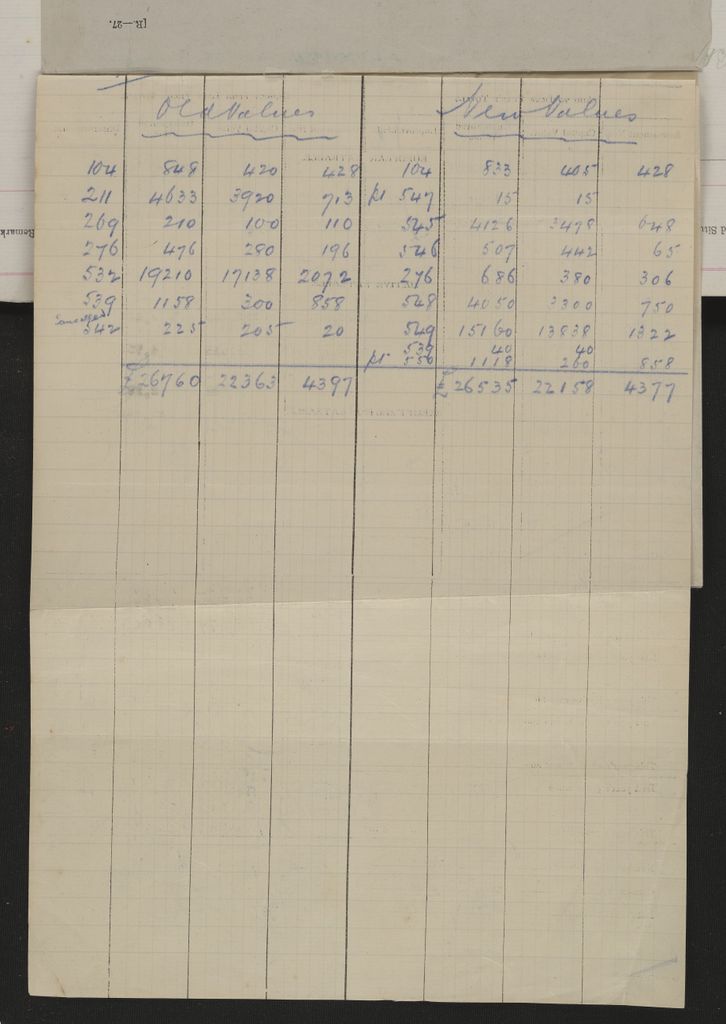 [R.—27.
Old Values New Values
104 848 420 428 104 833 405 428
211 4633 3920 713 pt 547 15 15
269 210 100 110 545 4126 3478 648
276 476 280 196 546 507 442 65
532 19210 17138 2072 276 686 380 306
539 1158 300 858 548 4050 3300 750
Cancelled
542 225 205 20 549 15160 13838 1322
539 40 40
pt 550 1118 260 858
£26760 22363 4397 £26535 22158 4377
Remark